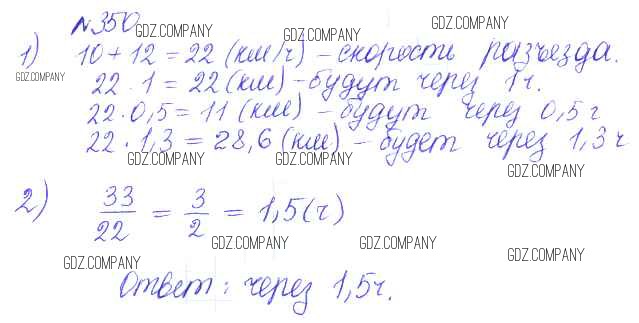 №350
GDZ.COMPANY GDZ.COMPANY GDZ.COMPANY
1) 10 + 12 = 22 (км/ч) – скорость разъезда.
GDZ.COMPANY
22 · 1 = 22 (км) – будут через 1 ч.
22 · 0,5 = 11 (км) – будут через 0,5 г
22 · 1,3 = 28,6 (км) – будет через 1,3 ч
GDZ.COMPANY GDZ.COMPANY GDZ.COMPANY
2) 33/22 = 3/2 = 1,5 (ч)
GDZ.COMPANY GDZ.COMPANY GDZ.COMPANY
GDZ.COMPANY
Ответ: через 1,5 ч.